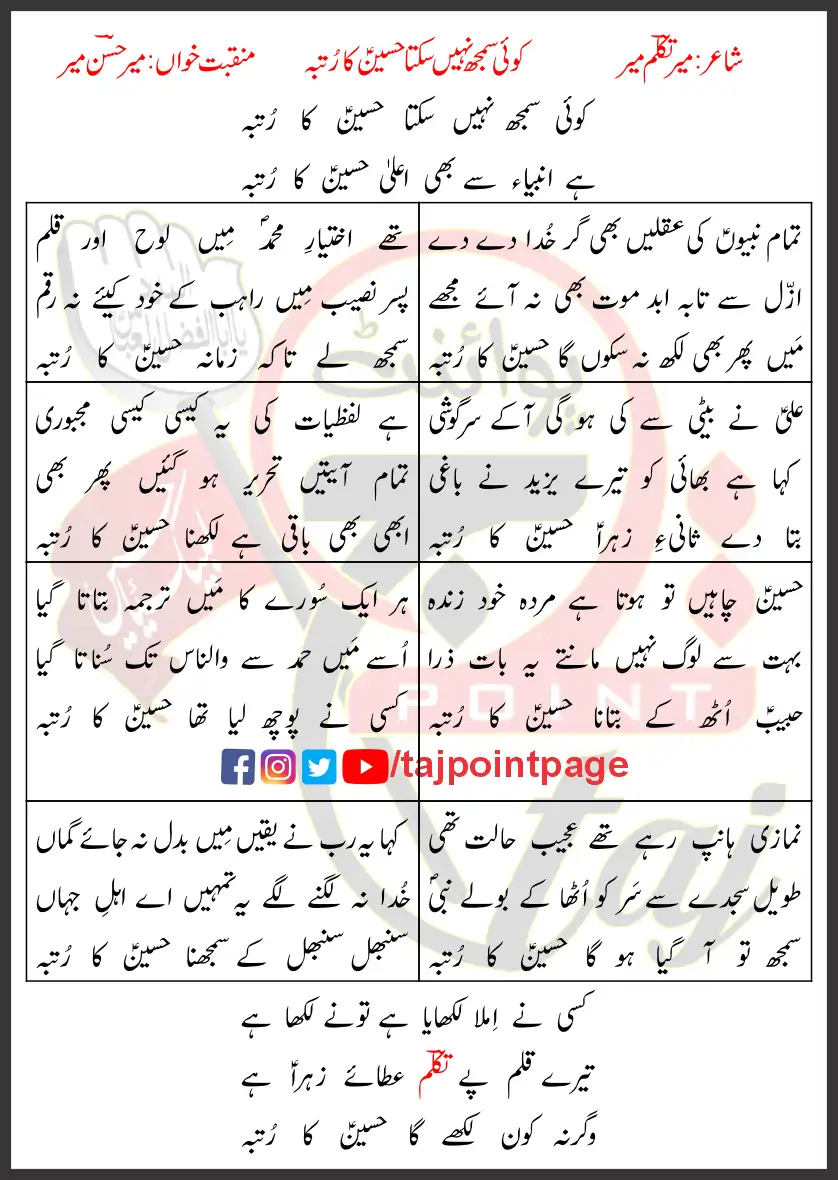 شاعر: میر تکلمؔ میر
کوئی سمجھ نہیں سکتا حسینؑ کا رُتبہ
منقبت خواں: میر حسنؔ میر
کوئی سمجھ نہیں سکتا حسینؑ کا رُتبہ
ہے انبیاء سے بھی اعلیٰ حسینؑ کا رُتبہ
تمام نبیوںؑ کی عقلیں بھی گر خُدا دے دے
ازّل سے تابہ ابد موت بھی نہ آئے مجھے
مَیں پھر بھی لکھ نہ سکوں گا حسینؑ کا رُتبہ
تھے اختیارِ محمدؐ مِیں لوح اور قلم
پسر نصیب مِیں راہب کے خود کیئے نہ رقم
سمجھ لے تاکہ زمانہ حسینؑ کا رُتبہ
علیؑ نے بیٹی سے کی ہو گی آکے سرگوشی
کہا ہے بھائی کو تیرے یزید نے باغی
بتا دے ثانیءِ زہراؑ حسینؑ کا رُتبہ
ہے لفظیات کی یہ کیسی کیسی مجبوری
تمام آیتیں تحریر ہو گئیں پھر بھی
ابھی بھی باقی ہے لکھنا حسینؑ کا رُتبہ
حسینؑ چاہیں تو ہوتا ہے مردہ خود زندہ
بہت سے لوگ نہیں مانتے یہ بات ذرا
حبیبؑ اُٹھ کے بتانا حسینؑ کا رُتبہ
ہر ایک سُورے کا مَیں ترجمہ بتاتا گیا
اُسے مَیں حمد سے والناس تک سُناتا گیا
کسی نے پوچھ لیا تھا حسینؑ کا رُتبہ
/tajpointpage
نمازی ہانپ رہے تھے عجیب حالت تھی
طویل سجدے سے سَر کو اُٹھا کے بولے نبیؐ
سمجھ تو آ گیا ہو گا حسینؑ کا رُتبہ
کہا یہ رب نے یقیں مِیں بدل نہ جائے گماں
خُدا نہ لگنے لگے یہ تمہیں اے اہلِ جہاں
سنبھل سنبھل کے سمجھنا حسینؑ کا رُتبہ
کسی نے اِملا لکھایا ہے تونے لکھا ہے
تیرے قلم پے تکلمؔ عطائے زہراؑ ہے
وگرنہ کون لکھے گا حسینؑ کا رُتبہ
پوائنٹ
POINT
taj